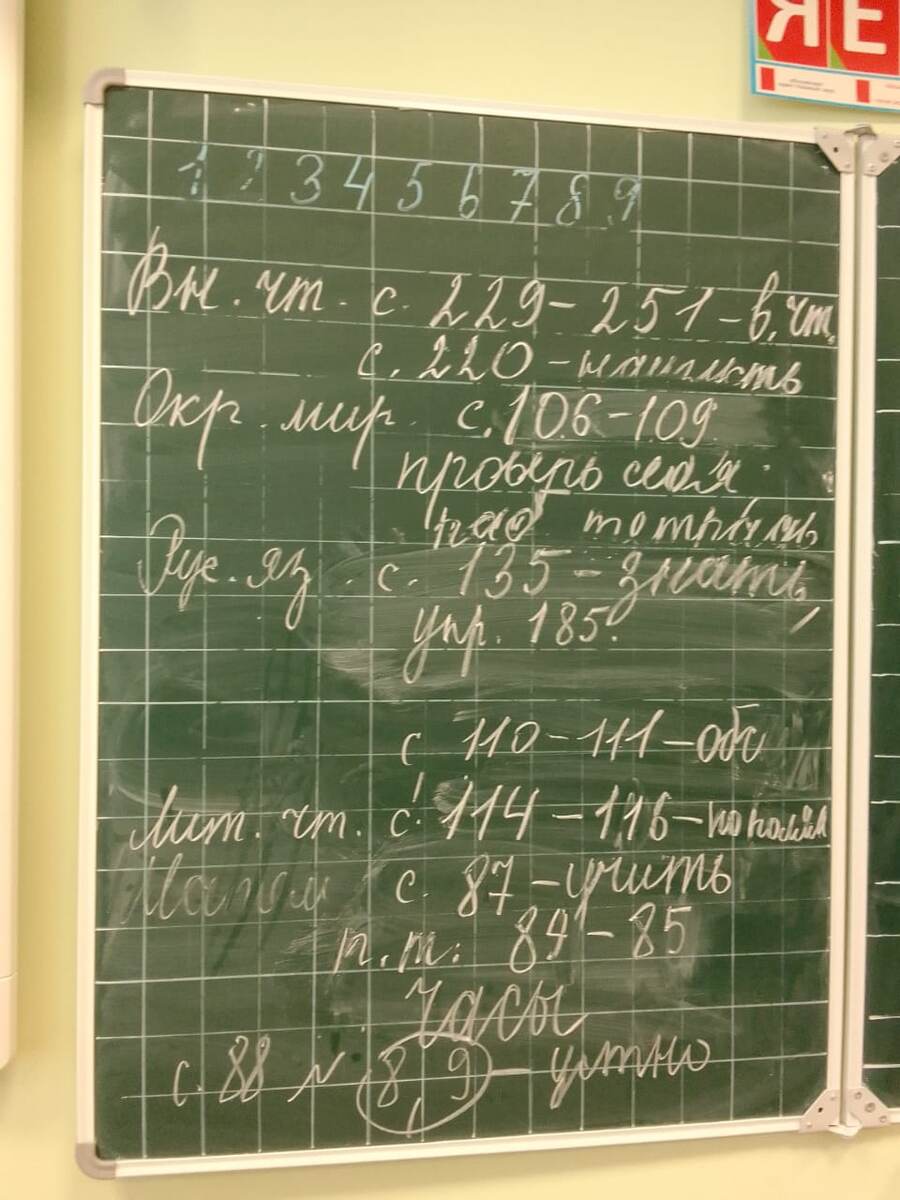 Я Е
1 2 3 4 5 6 7 8 9
Вн. чт. с. 229-251-в. чт.
с. 220-наизусть
Окр. мир. с. 106-109
проверь себя,
Рус. яз. с. 135-знать,
упр. 185.
с 110-111-обс
Лит. чт. с. 114-116-по ролям
Матем с. 87-учить
р.т. 84-85
Часы
с. 88 № 8, 9 - устно